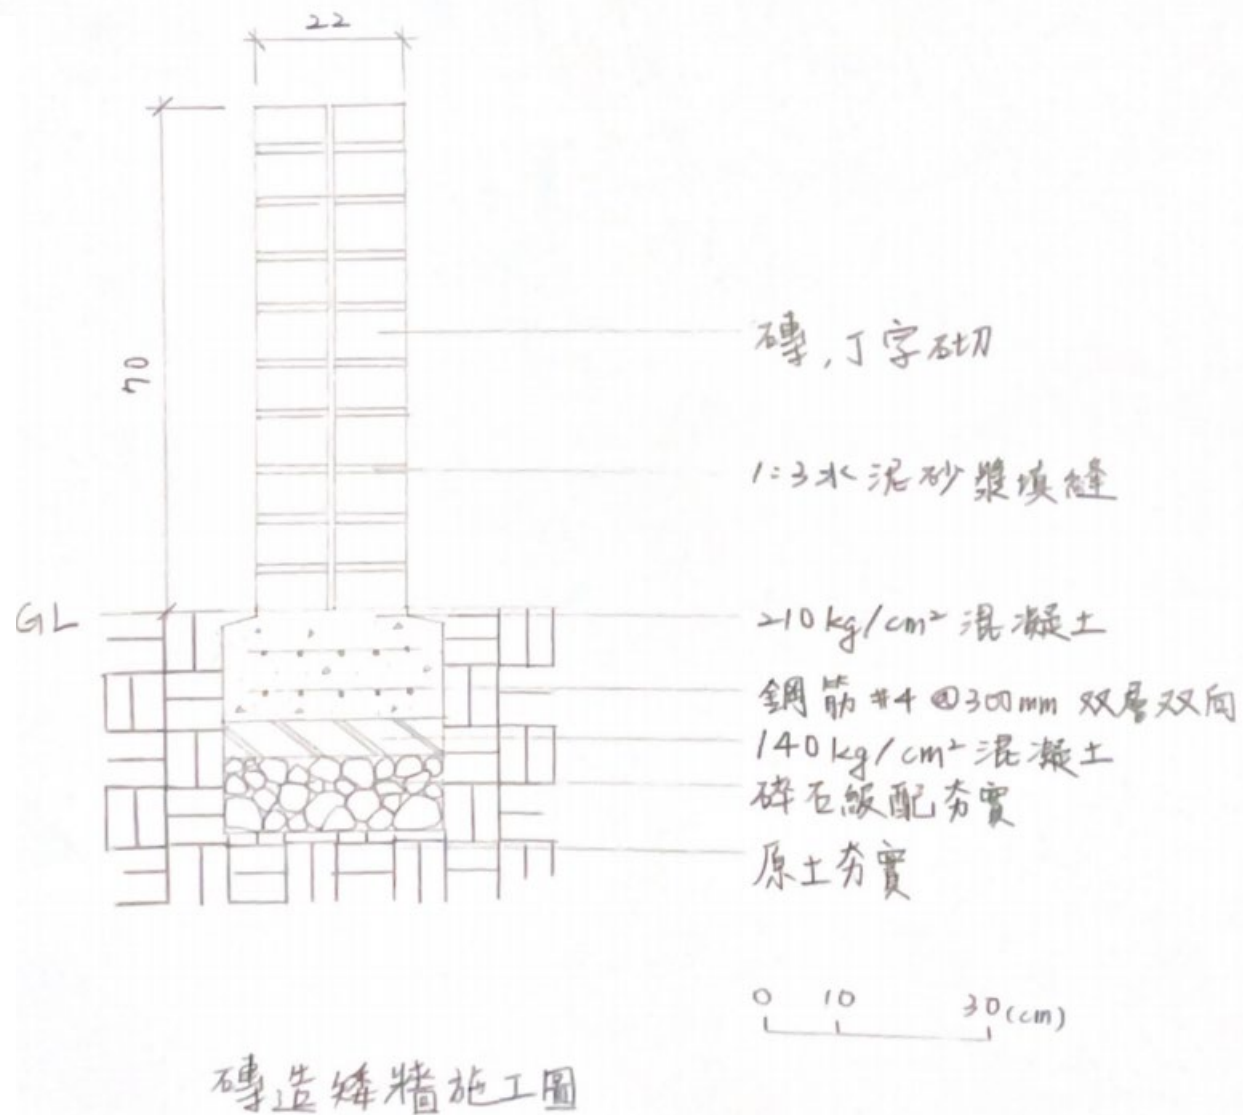 22
70
磚,丁字砌
1:3水泥砂漿填縫
GL
210kg/cm² 混凝土
鋼筋#4@300mm 双層双向
140kg/cm² 混凝土
碎石級配夯實
原土夯實
0 10 30(cm)
磚造矮牆施工圖